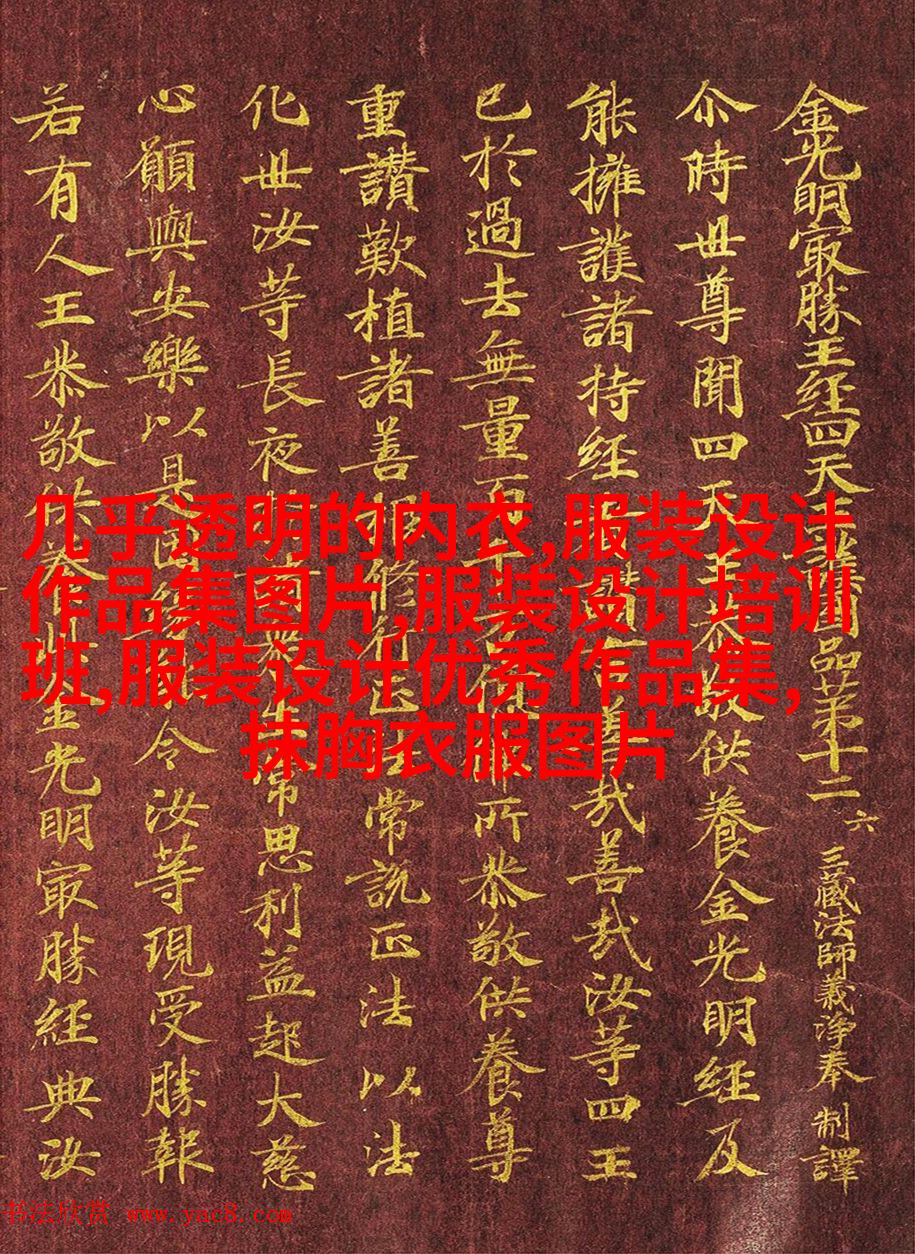 金光明冣勝王經四天王護國品苐十二 六 三藏法師義淨奉 制譯
尒時世尊聞四天王恭敬供養金光明經及
能擁護諸持經者讚言善哉善哉汝等四王
已於過去無量百千億佛所恭敬供養尊
重讚歎植諸善根修行正法常說正法以法
化世汝等長夜衆生常思利益起大慈
心願與安樂以是因緣令汝等現受勝報
若有人王恭敬供養金光明冣勝經典汝
几乎透明的内衣,服装设计
作品集图片,服装设计培训
班,服装设计优秀作品集,
抹胸衣服图片
书法欣赏 www.yac8.com